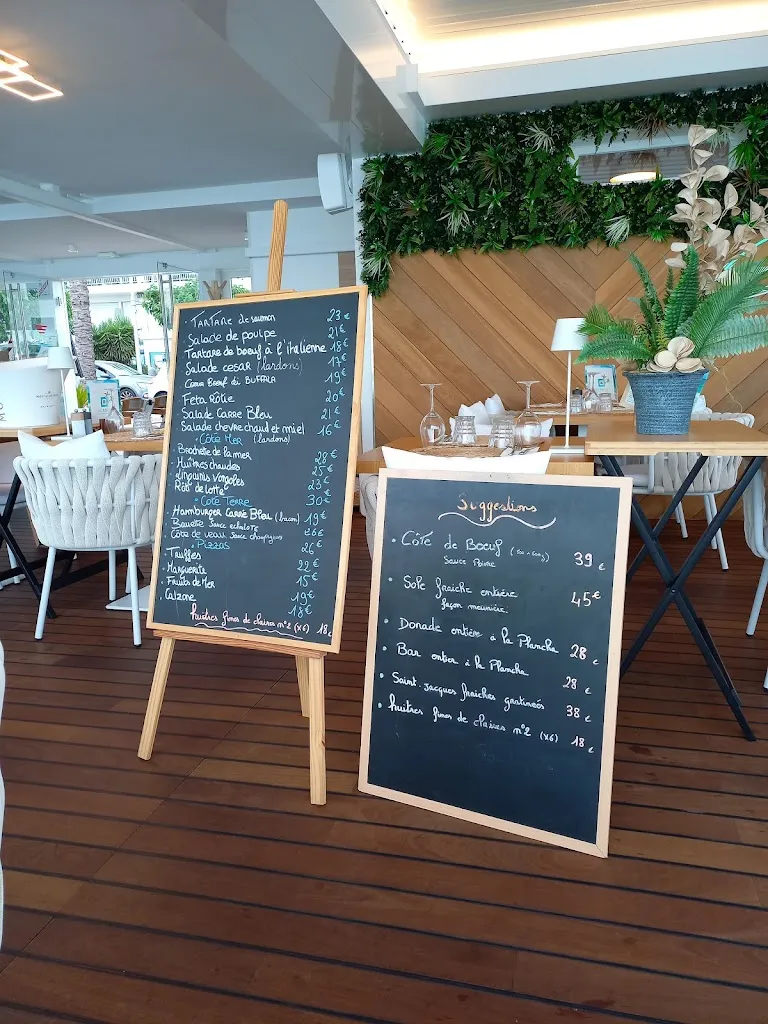 • TARTARE de saumon 23€
Salade de poulpe 21€
Tartare de boeuf à l'italienne 18€
Salade cesar (lardons) 17€
Coeur Boeuf di BUFFALA 19€
Feta Rôtie 20€
Salade Carre Bleu 21€
Salade chevre chaud et miel 16€
• Côte Mer (lardons)
• Brochette de la mer 28€
• Huîtres chaudes 25€
• Linguinis Vongoles 23€
Rôti de lotte 30€
• Côte Terre
Hamburger Carré Bleu (bacon) 19€
Bavette sauce echalote 26€
Côte de veau sauce champignons 26€
• Pizzas
Truffes 22€
• Marguerite 15€
• Fruits de Mer 19€
• Calzone 18€
huitres fines de claires n°2 (x6) 18€
Suggestions
• Côte de Boeuf 39€
Sauce Poivre
• Sole fraiche entière 45€
façon meunière.
• Dorade entière à la Plancha 28€
• Bar entier à la Plancha 28€
• Saint-Jacques fraiches gratineés 38€
• huitres fines de claires n°2 (x6) 18€